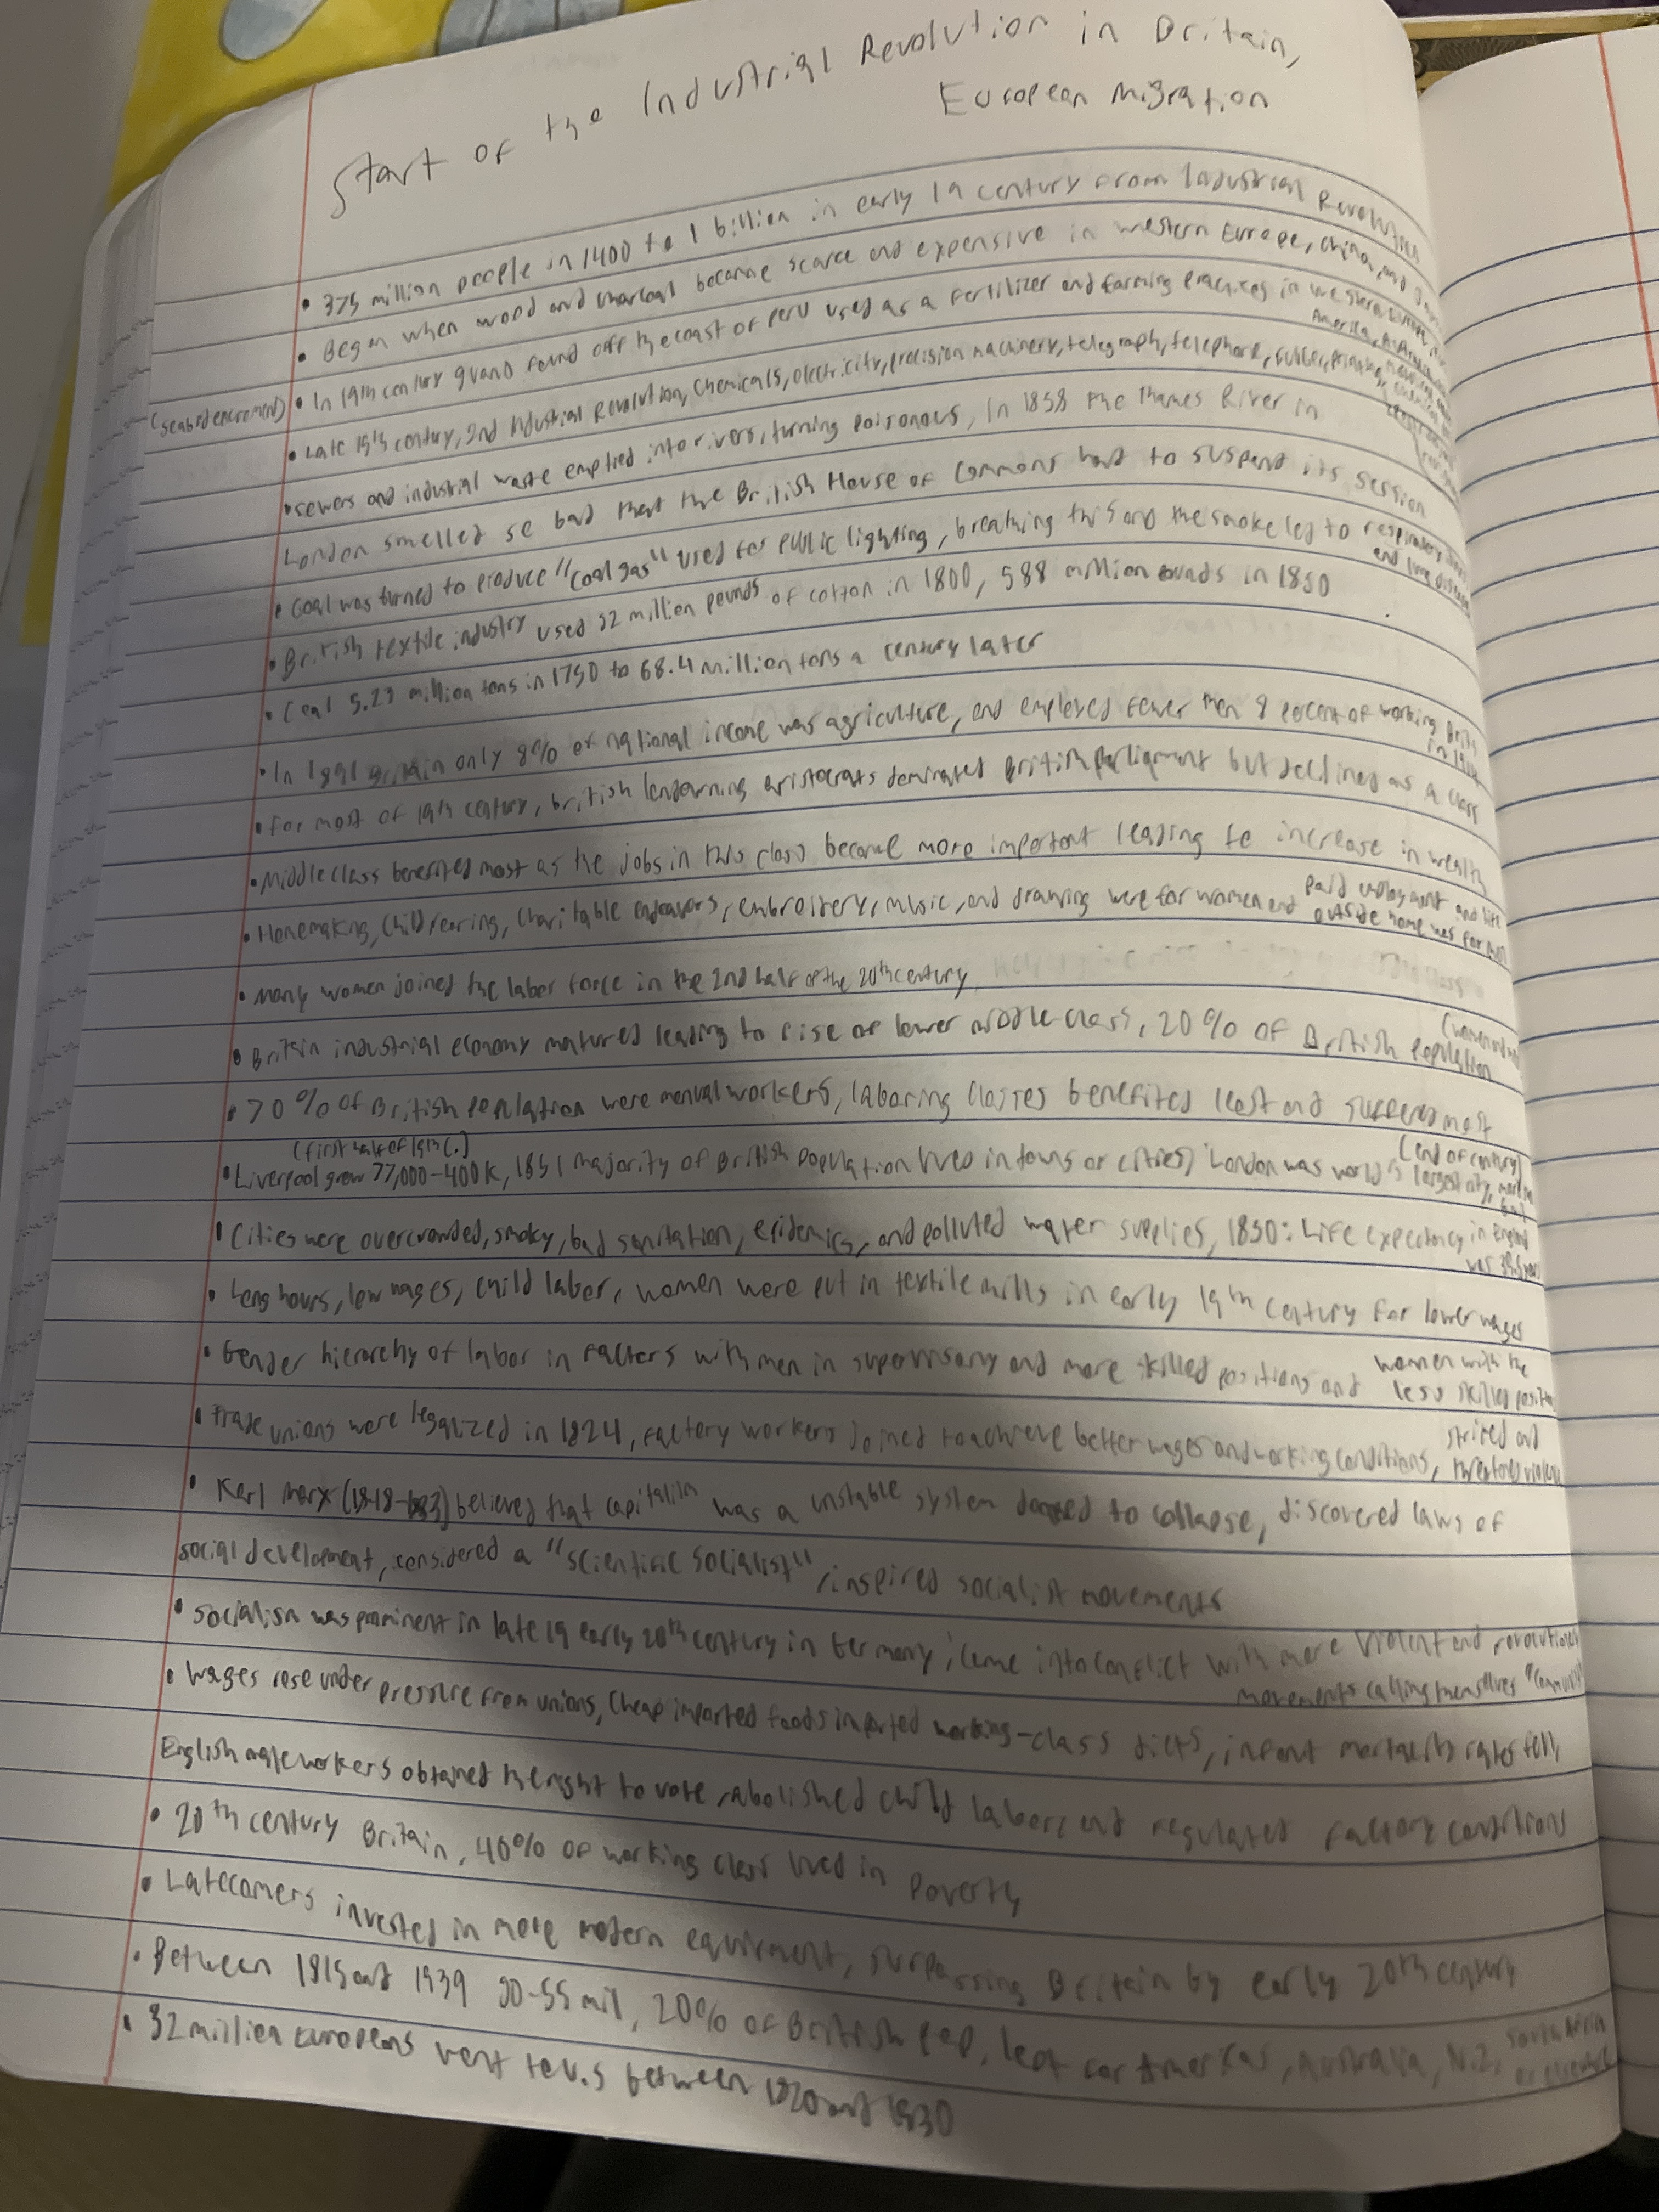 Start of the Industrial Revolution in Britain,
European Migration
• 375 million people in 1400 to 1 billion in early 19 century from Industrial Revolution
• Began when wood and charcoal became scarce and expensive in western Europe, China, and
(seabird excrement) • In 19th century guano found off the coast of Peru used as a fertilizer and farming practices in western Europe,
America, Australia
• Late 19th century, 2nd Industrial Revolution, chemicals, electricity, precision machinery, telegraph, telephone, rubber, printing,
• sewers and industrial waste emptied into rivers, turning poisonous, In 1858 the Thames River in
London smelled so bad that the British House of Commons had to suspend its session
• Coal was turned to produce "coal gas" used for public lighting, breathing this and the smoke led to respiratory
and lung
• British textile industry used 52 million pounds of cotton in 1800, 588 million pounds in 1850
• Coal 5.23 million tons in 1750 to 68.4 million tons a century later
• In 1891 Britain only 8% of national income was agriculture, and employed fewer then 8 percent of working Brits
in 1914
• For most of 19th century, british landowning aristocrats dominated British parliament but declined as a class
• Middle class benefited most as the jobs in this class became more important leading to increase in wealth
• Homemaking, child rearing, charitable endeavors, embroidery, music, and drawing were for women and paid employment and life
outside home was for men
• Many women joined the labor force in the 2nd half of the 20th century
• Britain industrial economy matured leading to rise of lower middle class, 20% of British population
(women and men
• 70% of British population were manual workers, laboring classes benefited least and suffered most
(first half of 19th c.) (end of century)
• Liverpool grew 77,000-400k, 1851 majority of British population lived in towns or cities, London was world's largest city,
• Cities were overcrowded, smoky, bad sanitation, epidemics, and polluted water supplies, 1850: Life expectancy in England
was 39.5 years
• Long hours, low wages, child labor, women were put in textile mills in early 19th century for lower wages
• Gender hierarchy of labor in factors with men in supervisory and more skilled positions and women with the
less skilled position
• Trade unions were legalized in 1824, factory workers joined to achieve better wages and working conditions, striked and
threatened violence
• Karl Marx (1818-1883) believed that capitalism was a unstable system doomed to collapse, discovered laws of
social development, considered a "scientific socialist", inspired socialist movements
• Socialism was prominent in late 19 early 20th century in Germany, came into conflict with more violent and revolutionary
movements calling themselves "Communist
• Wages rose under pressure from unions, Cheap imported foods imported working-class diets, infant mortality rates fell,
English male workers obtained the right to vote, abolished child labor, and regulated factory conditions
• 20th century Britain, 40% of working class lived in poverty
• Latecomers invested in more modern equipment, surpassing Britain by early 20th century
• Between 1815 and 1939 50-55 mil, 20% of British pop. left for Americas, Australia, N.Z, South Africa
or elsewhere
• 32 million Europeans went to U.S between 1820 and 1930